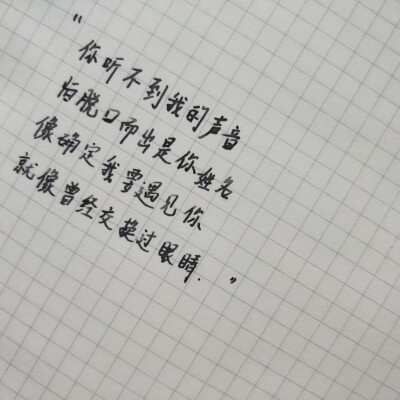 “
你听不到我的声音
怕脱口而出是你姓名
像确定我要遇见你
就像曾经交换过眼睛.”